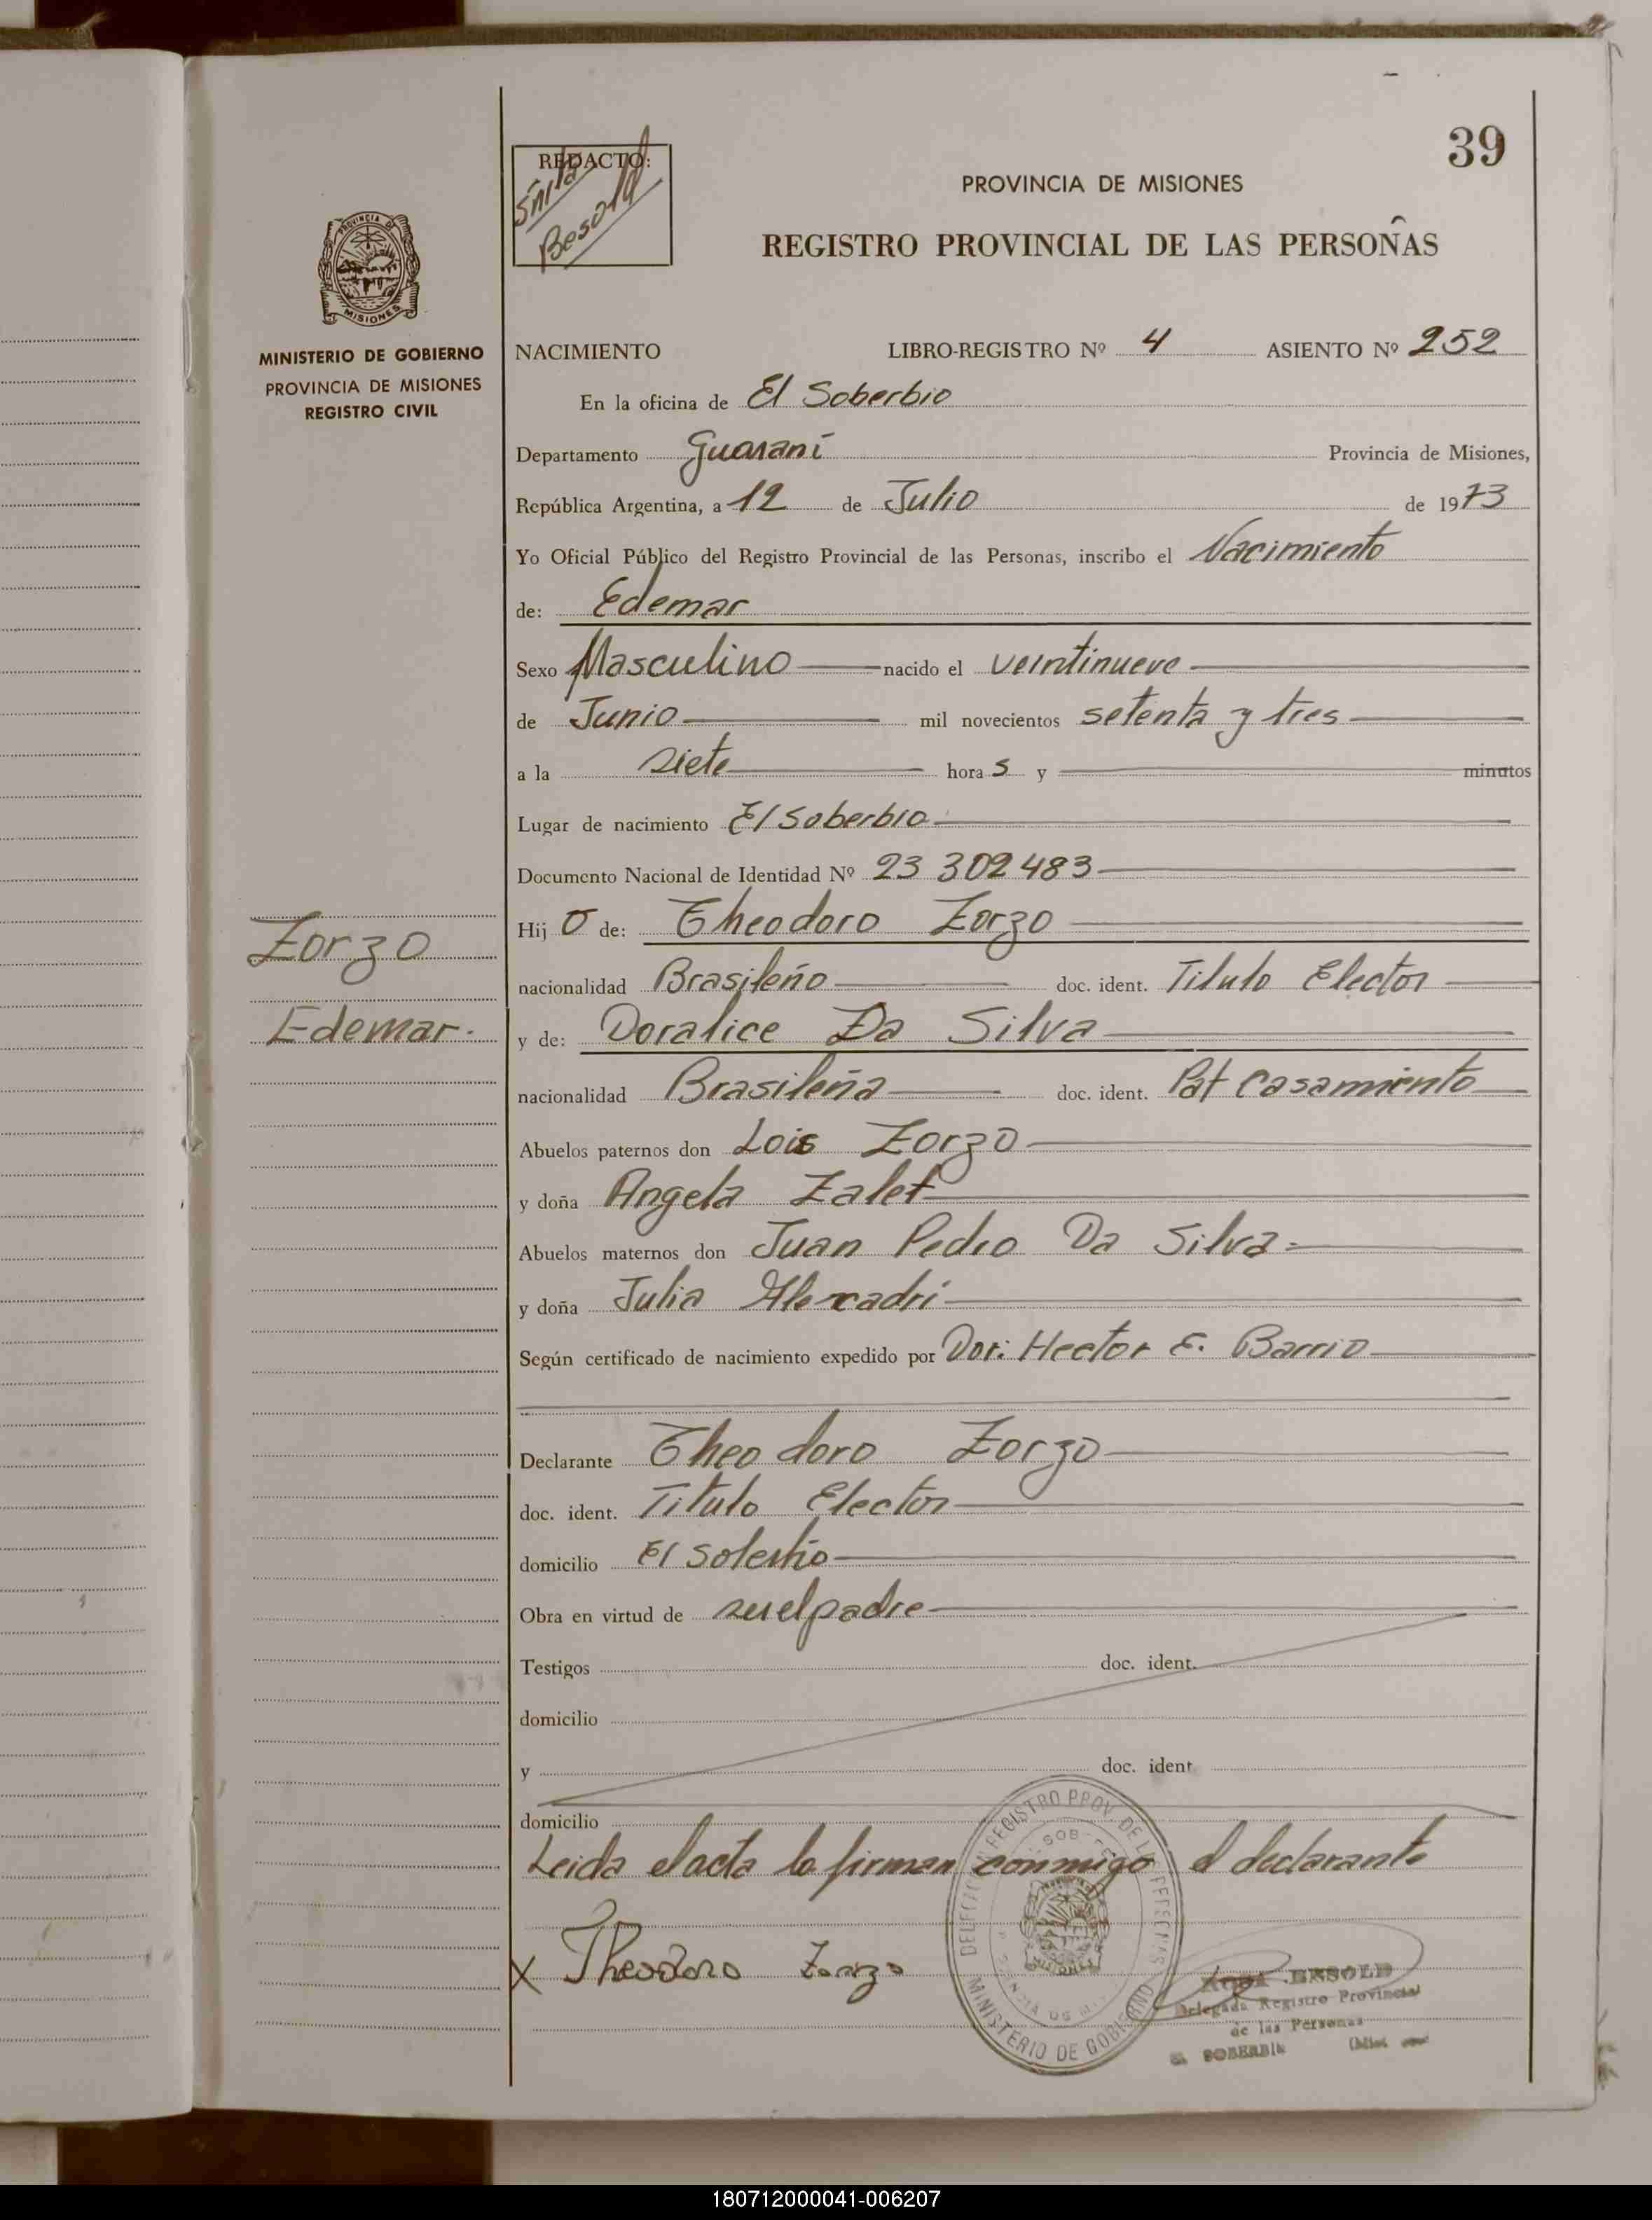 39
REDACTO:
Besold
PROVINCIA DE MISIONES
REGISTRO PROVINCIAL DE LAS PERSONAS
PROVINCIA DE
MISIONES
MINISTERIO DE GOBIERNO
PROVINCIA DE MISIONES
REGISTRO CIVIL
NACIMIENTO LIBRO-REGISTRO Nº 4 ASIENTO Nº 252
En la oficina de El Soberbio
Departamento Guaraní Provincia de Misiones,
República Argentina, a 12 de Julio de 1973
Yo Oficial Público del Registro Provincial de las Personas, inscribo el Nacimiento
de: Edemar
Sexo Masculino nacido el veintinueve
de Junio mil novecientos setenta y tres
a la siete hora s y minutos
Lugar de nacimiento El Soberbio
Documento Nacional de Identidad Nº 23 302 483
Zorzo
Edemar.
Hij o de: Theodoro Zorzo
nacionalidad Brasileño doc. ident. Titulo Elector
y de: Doralice Da Silva
nacionalidad Brasileña doc. ident. Pat Casamiento
Abuelos paternos don Lois Zorzo
y doña Angela Zalet
Abuelos maternos don Juan Pedro Da Silva
y doña Julia
Según certificado de nacimiento expedido por Dor. Hector E. Barrio
Declarante Theodoro Zorzo
doc. ident. Titulo Elector
domicilio El Soberbio
Obra en virtud de ser el padre
Testigos doc. ident.
domicilio
y doc. ident
domicilio
Leida el acta la firman conmigo el declarante
X Theodoro Zorzo
MINISTERIO DE GOBIERNO
BESOLD
Delegada Registro Provincial
de las Personas
SOBERBIO
180712000041-006207